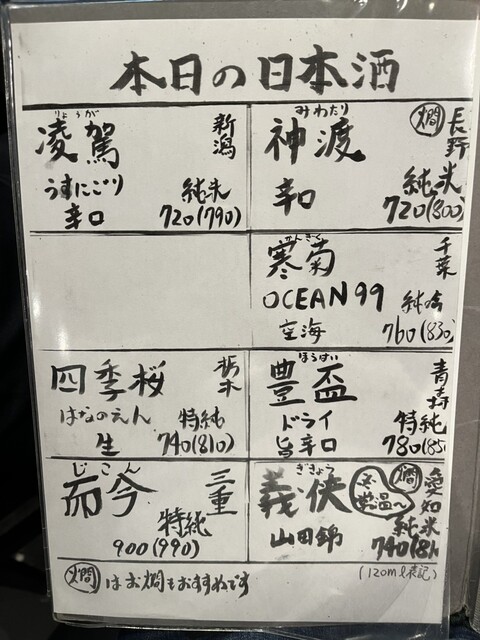 本日の日本酒
りょうが
凌駕 新潟
うすにごり 純米
辛口 720(790)
みわたり
神渡 燗 長野
純米
辛口 720(800)
かんきく
寒菊 千葉
OCEAN99 純吟
空海 760(830)
四季桜 栃木
はなのえん 特純
生 740(810)
ほうはい
豊盃 青森
ドライ 特純
旨辛口 780(85
じこん
而今 三重
特純
900(990)
ぎきょう
義侠 燗 愛知
常温〜
純米
山田錦 740(81
燗はお燗もおすすめです
(120ml表記)